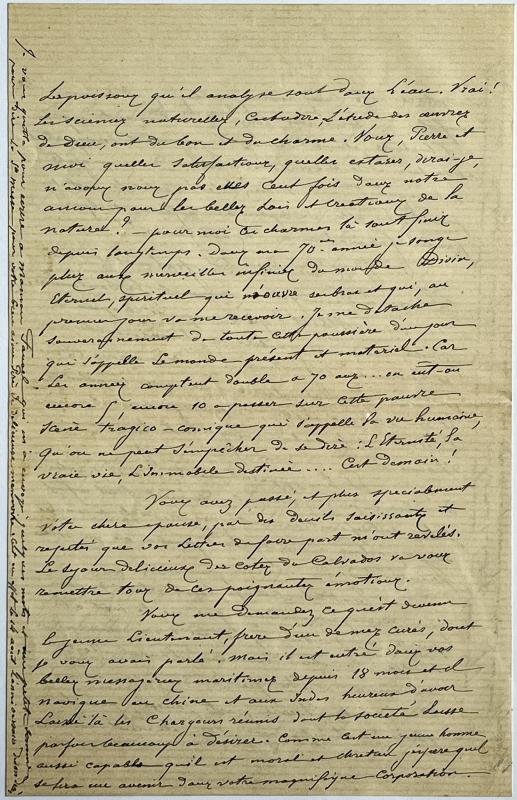 Les poissons qu'il analyse sont dans l'eau. Vrai!
Les sciences naturelles, c'est-à-dire, l'étude des œuvres
de Dieu, ont du bon et du charme. Vous, Pierre et
moi quelles satisfactions, quelles extases, dirai-je,
n'avons nous pas cent fois dans notre
amour pour les belles lois et créations de la
nature? – pour moi ces charmes là sont finis
depuis longtemps. Dans ma 70me année je songe
plus aux merveilles infinies du monde Divin,
Eternel, spirituel qui m'ouvre ses bras et qui, au
premier jour va me recevoir. Je me détache
souverainement de toute cette poussière d'un jour
qui s'appelle le monde présent et matériel. Car
les années comptent double à 70 ans... en eut-on
encore 10 à passer sur cette pauvre
scène tragico-comique qui s'appelle la vie humaine,
qu'on ne peut s'empêcher de se dire: L'Eternité, la
vraie vie, l'immobile destinée.... C'est demain!
Vous avez passé, et plus spécialement
votre chère épouse, par des deuils saisissants et
répétés que vos lettres de faire part m'ont révélés.
Le séjour délicieux des côtes du Calvados va vous
remettre tous de ces poignantes émotions.
Vous me demandez ce qu'est devenu
le jeune Lieutenant frère d'un de mes curés, dont
je vous avais parlé. Mais il est entré dans vos
belles messageries maritimes depuis 18 mois et il
navigue en Chine et aux Indes heureux d'avoir
laissé là les Chargeurs réunis dont la société laisse
parfois beaucoup à désirer. Comme c'est un jeune homme
aussi capable qu'il est moral et chrétien j'espère qu'il
se fera un avenir dans votre magnifique Corporation.
Je vous quitte pour écrire à Maria